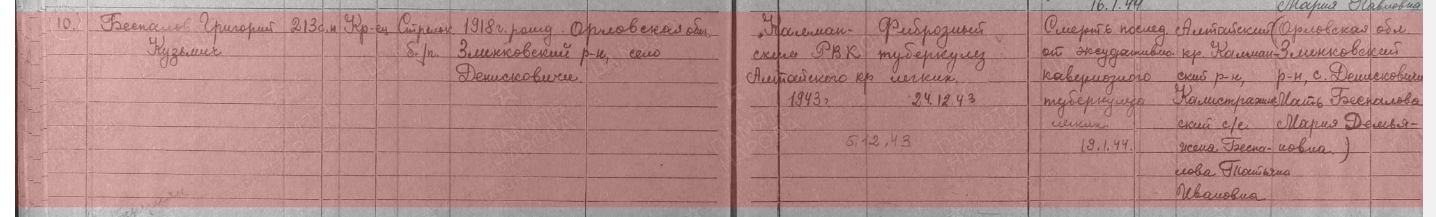 16.1.44 Мария Павловна
10. Беспалов Григорий 213 с.п Кр-ец Стрелок 1918 г. рожд. Орловская обл,
Кузьмич б/п. Злынковский р-н, село
Денисковичи.
Калман-
ским РВК
Алтайского кр
1943 г
Фиброзный
туберкулез
легких.
24.12.43
5.12.43
Смерть послед.
от экссудативно
кавернозного
туберкулеза
легких.
19.1.44.
Алтайский
кр. Калман-
ский р-н,
Калистратин-
ский с/с.
жена Беспа-
лова Татьяна
Ивановна
(Орловская обл
Злынковский
р-н, с. Денисковичи
Мать Беспалова
Мария Демья-
новна)